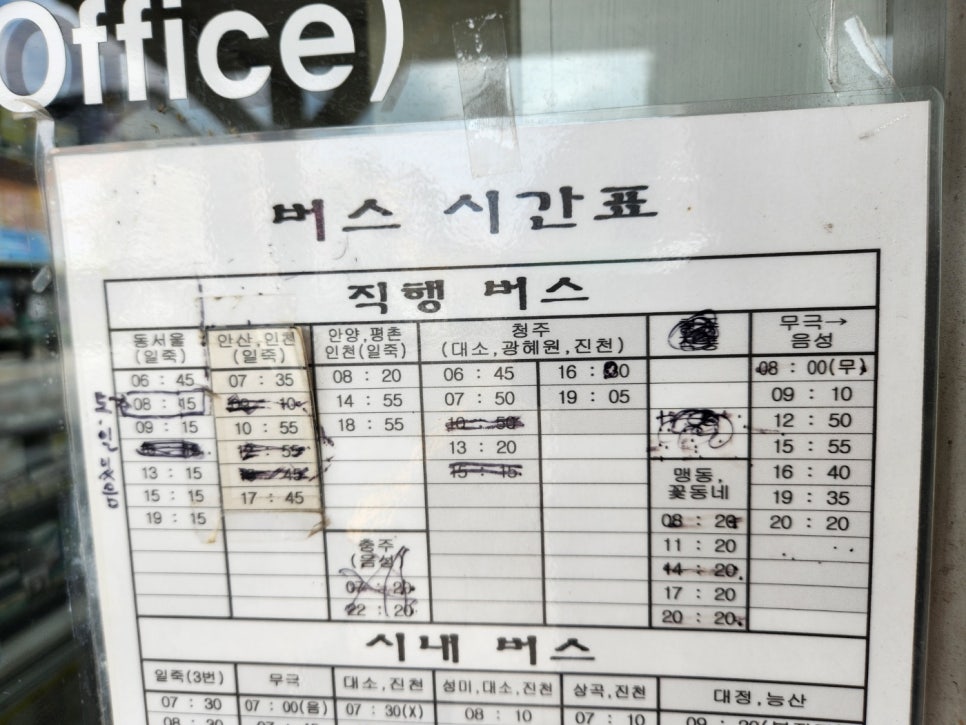 Office)
버스 시간표
직행 버스
동서울 (일죽) 안산,인천 (일죽) 안양,평촌 인천(일죽) 청주 (대소,광혜원,진천) 무극→ 음성
06 : 45 07 : 35 08 : 20 06 : 45 16 : 00 08 : 00(무)
08 : 15 14 : 55 07 : 50 19 : 05 09 : 10
09 : 15 10 : 55 18 : 55 10 : 50 12 : 50
12 : 55 13 : 20 15 : 55
13 : 15 15 : 15 맹동, 꽃동네 16 : 40
15 : 15 17 : 45 19 : 35
19 : 15 08 : 20 20 : 20
충주 (음성) 11 : 20
14 : 20
07 : 20 17 : 20
22 : 20 20 : 20
시내 버스
일죽(3번) 무극 대소,진천 성미,대소,진천 상곡,진천 대정,능산
07 : 30 07 : 00(음) 07 : 30(X) 08 : 10 07 : 10